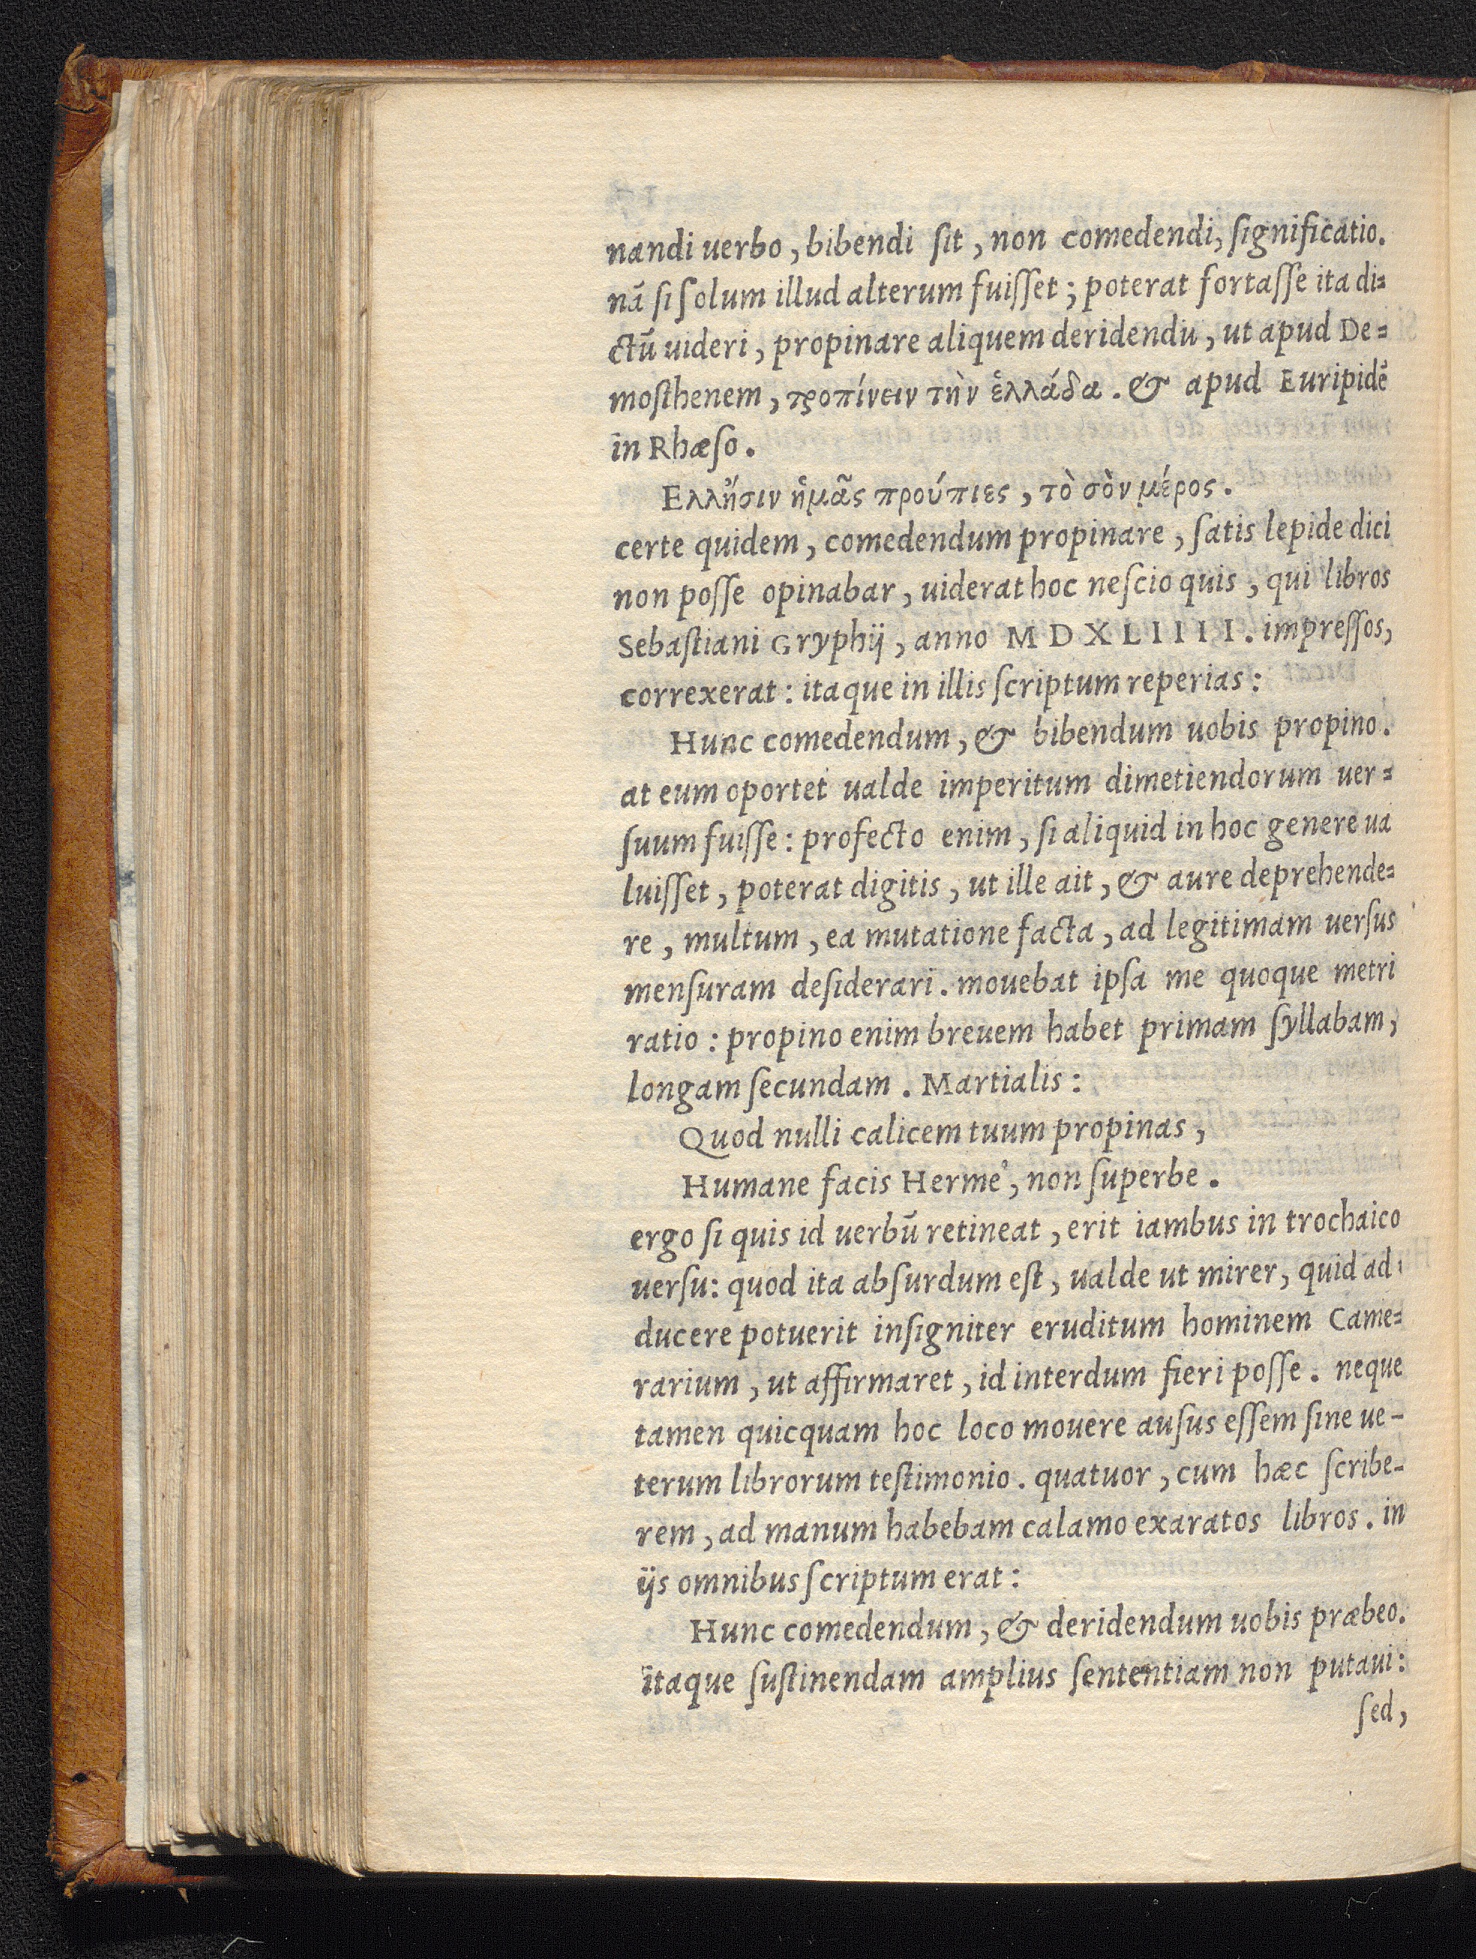 nandi uerbo, bibendi sit, non comedendi, significatio.
nā si solum illud alterum fuisset; poterat fortasse ita di=
ctū uideri, propinare aliquem deridendū, ut apud De=
mosthenem, προπίνειν τὴν ἑλλάδα. & apud Euripidē
in Rhæso.
Ελλήσιν ἡμᾶς προύπιες, τὸ σὸν μέρος.
certe quidem, comedendum propinare, satis lepide dici
non posse opinabar, uiderat hoc nescio quis, qui libros
Sebastiani Gryphij, anno MDXLIIII. impressos,
correxerat: itaque in illis scriptum reperias:
Hunc comedendum, & bibendum uobis propino.
at eum oportet ualde imperitum dimetiendorum uer=
suum fuisse: profecto enim, si aliquid in hoc genere ua
luisset, poterat digitis, ut ille ait, & aure deprehende=
re, multum, ea mutatione facta, ad legitimam uersus
mensuram desiderari. mouebat ipsa me quoque metri
ratio: propino enim breuem habet primam syllabam,
longam secundam. Martialis:
Quod nulli calicem tuum propinas,
Humane facis Herme, non superbe.
ergo si quis id uerbū retineat, erit iambus in trochaico
uersu: quod ita absurdum est, ualde ut mirer, quid ad
ducere potuerit insigniter eruditum hominem Came=
rarium, ut affirmaret, id interdum fieri posse. neque
tamen quicquam hoc loco mouere ausus essem sine ue-
terum librorum testimonio. quatuor, cum hæc scribe-
rem, ad manum habebam calamo exaratos libros. in
ijs omnibus scriptum erat:
Hunc comedendum, & deridendum uobis præbeo.
itaque sustinendam amplius sententiam non putaui:
sed,